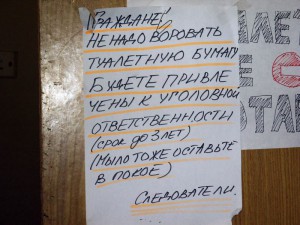 ГРАЖДАНЕ!
НЕ НАДО ВОРОВАТЬ
ТУАЛЕТНУЮ БУМАГУ
БУДЕТЕ ПРИВЛЕ
ЧЕНЫ К УГОЛОВНОЙ
ОТВЕТСТВЕННОСТИ
(СРОК ДО 3 ЛЕТ)
(МЫЛО ТОЖЕ ОСТАВЬТЕ
В ПОКОЕ)
СЛЕДОВАТЕЛИ.